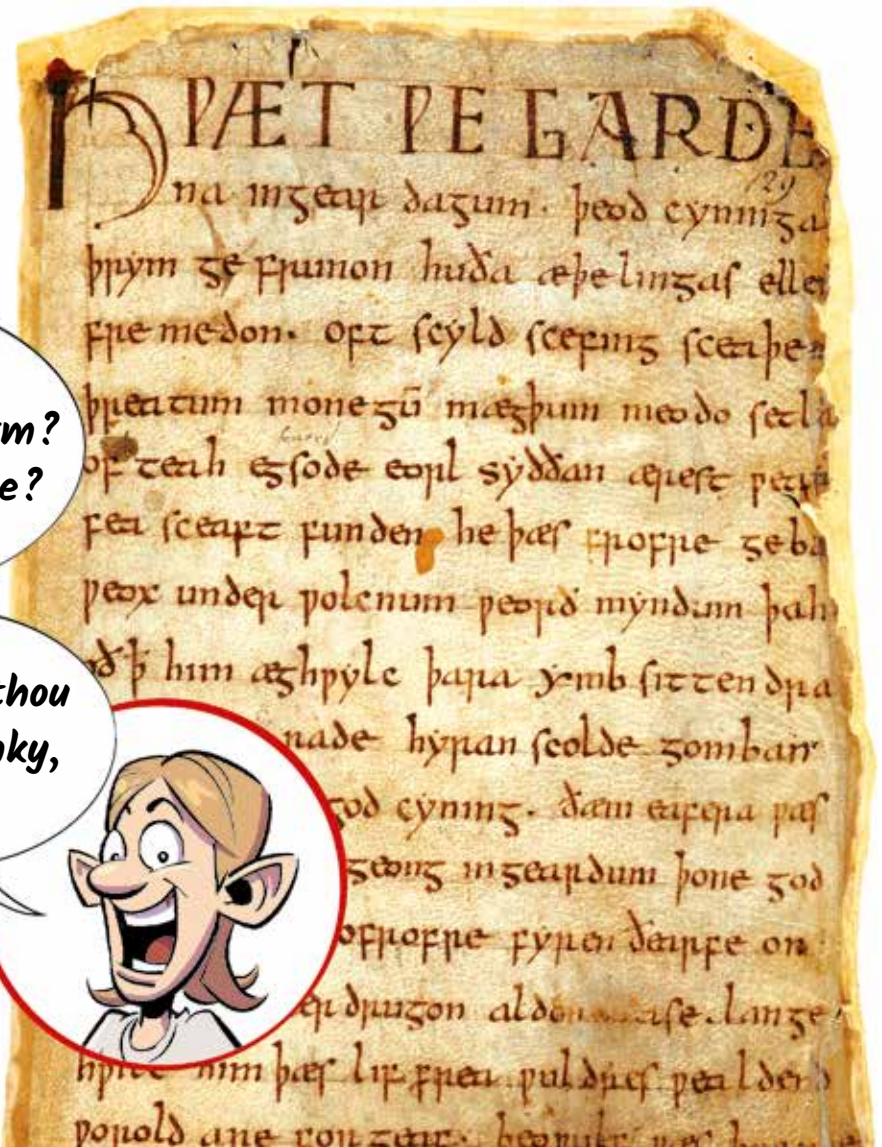 m?
e?
thou
nky,
HǷÆT ǷE GARDE
129
na ingear dagum. þeod cyninga
þrym ge frunon huða æþelingaſ elle
fremedon. oft ſcyld ſcefing ſceaþe
þreatum monegū mægþum meodo ſetla
of teah egſode eorl syððan æreſt ƿear
fea ſceaft funden he þæſ frofre geba
ƿeox under ƿolcnum ƿeorð myndum þah
oð þ him æghƿylc þara ymb ſittendra
rade hyran ſcolde gomban
god cyning. ðæm eafera ƿæſ
geong ingeardum þone god
ofrofre fyren ðearfe on
er drugon aldor aſe lange
him þæſ lif frea ƿuldreſ ƿealdend
ƿorold are forgeaf.